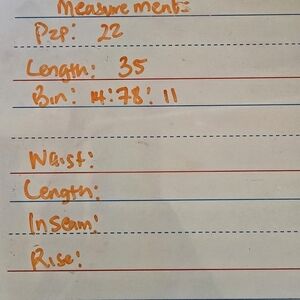 Measurement:
P2P: 22
Length: 35
Bin: 14:78:11
Waist:
Length:
Inseam:
Rise: